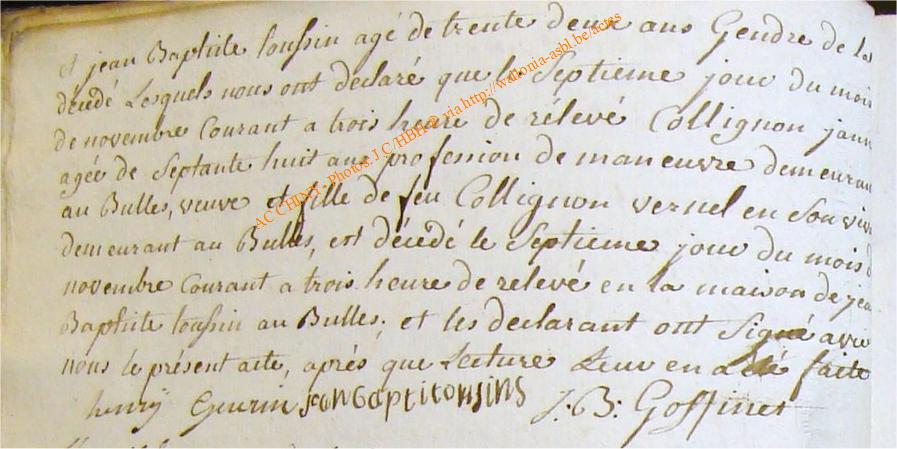 et jean Baptiste toussin agé de trente deux ans Gendre de la
décédé Lesquels nous ont déclaré que le Septieme jour du mois
de novembre Courant a trois heure de rélevé Collignon jann
agée de Septante huit ans profession de maneuvre demeuran
au Bulles, veuve et fille de feu Collignon vernel en Son viva
demeurant au Bulles, est décédé le Septieme jour du mois d
novembre Courant a trois heure de relevé en la maison de jea
Baptiste toussin au Bulles; et les declarant ont Signé avec
nous le présent acte, aprés que Lecture Leur en a été faite
henry Guerin jean baptitousins J: B: Goffinet
AC CHINY - Photos: J C/HBH © via http://wallonia-asbl.be/actes